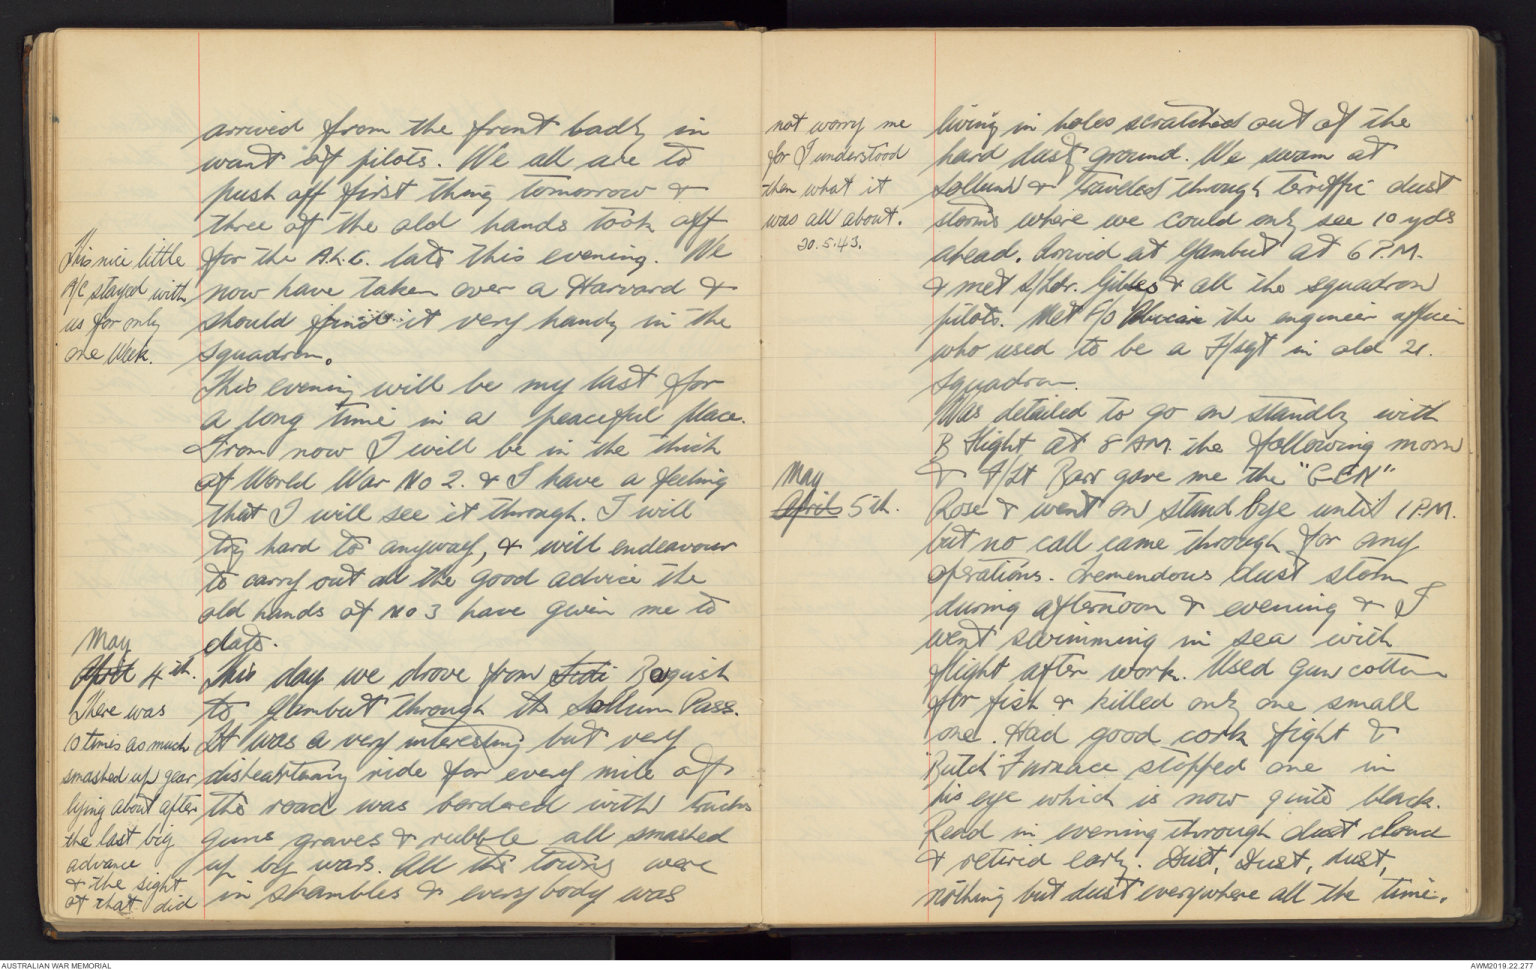 arrived from the front badly in
want of pilots. We all are to
push off first thing tomorrow &
three of the old hands took off
This nice little
A/C stayed with
us for only
one Week.
for the A.L.G. late this evening. We
now have taken over a Harvard &
should find it very handy in the
squadron.
This evening will be my last for
a long time in a peaceful place.
From now I will be in the thick
of World War No 2. & I have a feeling
that I will see it through. I will
try hard to anyway, & will endeavour
to carry out all the good advice the
old hands of No 3 have given me to
date.
May
April 4th.
This day we drove from Sidi Bagush
to Gambut through the Sollum Pass.
It was a very interesting but very
disheartening ride for every mile of
the road was bordered with trucks
guns graves & rubble all smashed
up by wars. All the towns were
in shambles & everybody was
There was
10 times as much
smashed up gear
lying about after
the last big
advance
& the sight
of that did
not worry me
for I understood
then what it
was all about.
20.5.43.
living in holes scratched out of the
hard dusty ground. We swam at
Sollum & travelled through terriffic dust
storms where we could only see 10 yds
ahead. Arrived at Gambut at 6 P.M.
& met S/Ldr. Gibbes & all the squadron
pilots. Met F/O the engineer officer
who used to be a F/sgt in old 21.
squadron.
Was detailed to go on standby with
B Flight at 8 AM. the following morn
& F/Lt Barr gave me the "GEN"
May
April 5th.
Rose & went on stand bye until 1 P.M.
but no call came through for any
operations. Tremendous dust storm
during afternoon & evening & I
went swimming in sea with
flight after work. Used gun cotton
for fish & killed only one small
one. Had good cork fight &
Butch Furnace stopped one in
his eye which is now quite black.
Read in evening through dust cloud
& retired early. Dust, Dust, dust,
nothing but dust everywhere all the time.
AUSTRALIAN WAR MEMORIAL
AWM2019.22.277